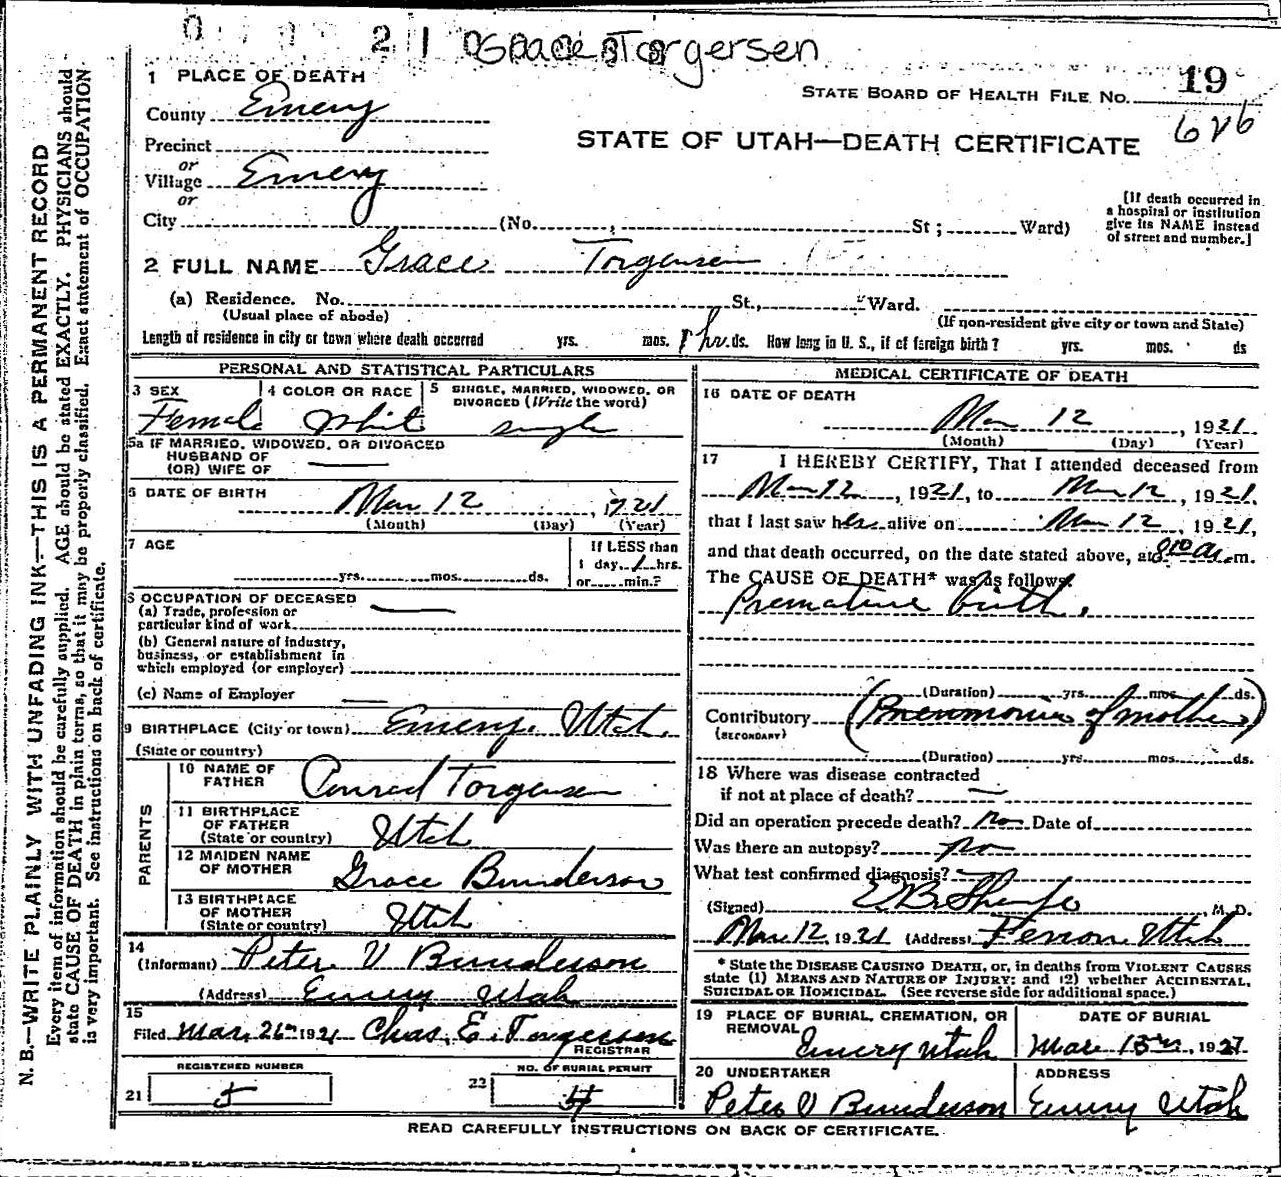 21 Grace Torgersen
1 PLACE OF DEATH
STATE BOARD OF HEALTH FILE NO. 19
County Emery
STATE OF UTAH—DEATH CERTIFICATE
626
Precinct
or
Village Emery
or
City (No. , St; Ward)
[If death occurred in a hospital or institution give its NAME instead of street and number.]
2 FULL NAME Grace Torgersen
(a) Residence. No. St., Ward.
(Usual place of abode) (If non-resident give city or town and State)
Length of residence in city or town where death occurred yrs. mos. 1 hr. ds. How long in U. S., if of foreign birth? yrs. mos. ds
PERSONAL AND STATISTICAL PARTICULARS
3 SEX Female
4 COLOR OR RACE White
5 SINGLE, MARRIED, WIDOWED, OR DIVORCED (Write the word) single
5a IF MARRIED, WIDOWED, OR DIVORCED
HUSBAND OF
(OR) WIFE OF
6 DATE OF BIRTH
Mar 12, 1921
(Month) (Day) (Year)
7 AGE
yrs. mos. ds.
If LESS than
1 day, 1 hrs.
or min.?
8 OCCUPATION OF DECEASED
(a) Trade, profession or
particular kind of work
(b) General nature of industry,
business, or establishment in
which employed (or employer)
(c) Name of Employer
9 BIRTHPLACE (City or town) Emery. Utah.
(State or country)
PARENTS
10 NAME OF FATHER Conrad Torgersen
11 BIRTHPLACE OF FATHER (State or country) Utah
12 MAIDEN NAME OF MOTHER Grace Bunderson
13 BIRTHPLACE OF MOTHER (State or country) Utah
14
(Informant) Peter V Bunderson
(Address) Emery Utah
15
Filed Mar, 26th 1921 Chas. E. Torgersen
REGISTRAR
REGISTERED NUMBER
21 5
NO. OF BURIAL PERMIT
22
MEDICAL CERTIFICATE OF DEATH
16 DATE OF DEATH
Mar 12, 1921
(Month) (Day) (Year)
17 I HEREBY CERTIFY, That I attended deceased from
Mar 12, 1921, to Mar 12, 1921,
that I last saw her alive on Mar 12, 1921,
and that death occurred, on the date stated above, at 8 10 a.m.
The CAUSE OF DEATH* was as follows:
Premature birth.
(Duration) yrs. mos. 1 ds.
Contributory (Pneumonia of mother)
(SECONDARY)
(Duration) yrs. mos. ds.
18 Where was disease contracted
if not at place of death?
Did an operation precede death? no Date of
Was there an autopsy? no
What test confirmed diagnosis?
(Signed) M. D.
Mar 12, 1921 (Address) Ferron Utah
* State the DISEASE CAUSING DEATH, or, in deaths from VIOLENT CAUSES
state (1) MEANS AND NATURE OF INJURY; and (2) whether ACCIDENTAL,
SUICIDAL OR HOMICIDAL. (See reverse side for additional space.)
19 PLACE OF BURIAL, CREMATION, OR REMOVAL Emery Utah
DATE OF BURIAL
Mar 13th, 1921
20 UNDERTAKER
Peter V Bunderson
ADDRESS
Emery Utah
READ CAREFULLY INSTRUCTIONS ON BACK OF CERTIFICATE.
N. B.—WRITE PLAINLY WITH UNFADING INK—THIS IS A PERMANENT RECORD
Every item of information should be carefully supplied. AGE should be stated EXACTLY. PHYSICIANS should
state CAUSE OF DEATH in plain terms, so that it may be properly classified. Exact statement of OCCUPATION
is very important. See instructions on back of certificate.